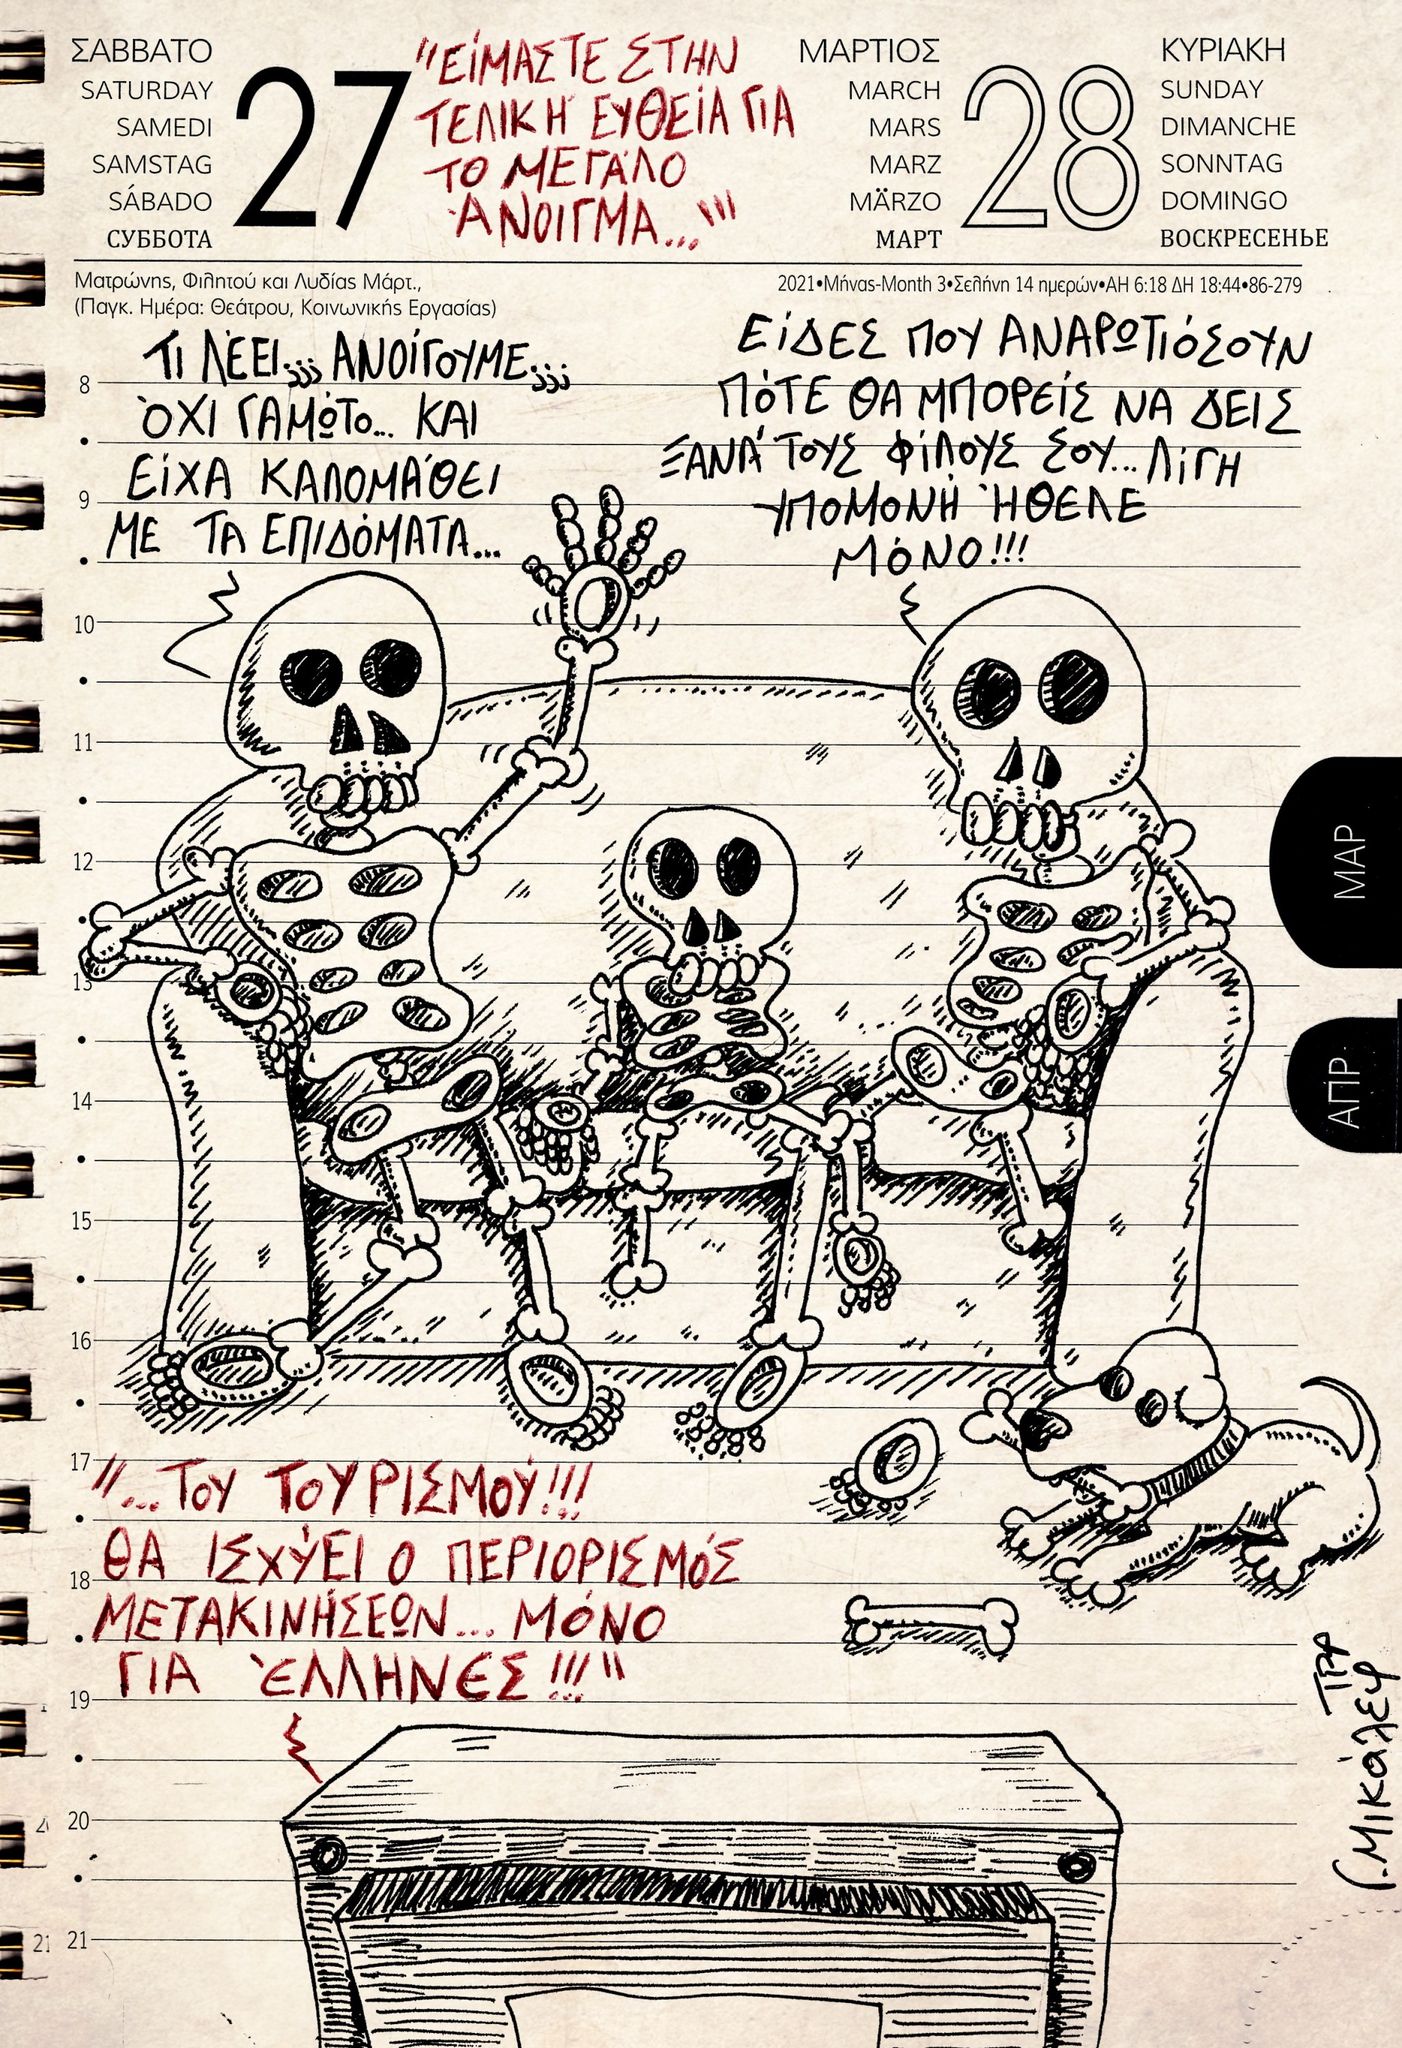 ΣΑΒΒΑΤΟ
SATURDAY
SAMEDI
SAMSTAG
SÁBADO
СУББОТА
27
"ΕΊΜΑΣΤΕ ΣΤΗΝ
ΤΕΛΙΚΉ ΕΥΘΕΊΑ ΓΙΑ
ΤΟ ΜΕΓΆΛΟ
ΆΝΟΙΓΜΑ..."
ΜΑΡΤΙΟΣ
MARCH
MARS
MARZ
MÄRZO
МАРТ
28
ΚΥΡΙΑΚΗ
SUNDAY
DIMANCHE
SONNTAG
DOMINGO
ВОСКРЕСЕНЬЕ
Ματρώνης, Φιλητού και Λυδίας Μάρτ.,
(Παγκ. Ημέρα: Θεάτρου, Κοινωνικής Εργασίας)
2021•Μήνας-Month 3•Σελήνη 14 ημερών•ΑΗ 6:18 ΔΗ 18:44•86-279
ΤΙ ΛΈΕΙ;;; ΑΝΟΊΓΟΥΜΕ;;;
ΌΧΙ ΓΑΜΏΤΟ... ΚΑΙ
ΕΊΧΑ ΚΑΛΟΜΆΘΕΙ
ΜΕ ΤΑ ΕΠΙΔΌΜΑΤΑ...
ΕΊΔΕΣ ΠΟΥ ΑΝΑΡΩΤΙΌΣΟΥΝ
ΠΌΤΕ ΘΑ ΜΠΟΡΕΊΣ ΝΑ ΔΕΙΣ
ΞΑΝΆ ΤΟΥΣ ΦΊΛΟΥΣ ΣΟΥ... ΛΊΓΗ
ΥΠΟΜΟΝΉ ΉΘΕΛΕ
ΜΌΝΟ!!!
8
9
10
11
12
13
14
15
16
17
18
19
20
21
ΜΑΡ
ΑΠΡ
"...ΤΟΥ ΤΟΥΡΙΣΜΟΎ!!!
ΘΑ ΙΣΧΎΕΙ Ο ΠΕΡΙΟΡΙΣΜΌΣ
ΜΕΤΑΚΙΝΉΣΕΩΝ... ΜΌΝΟ
ΓΙΑ ΈΛΛΗΝΕΣ!!!"
Γ. Μικάλεφ
21